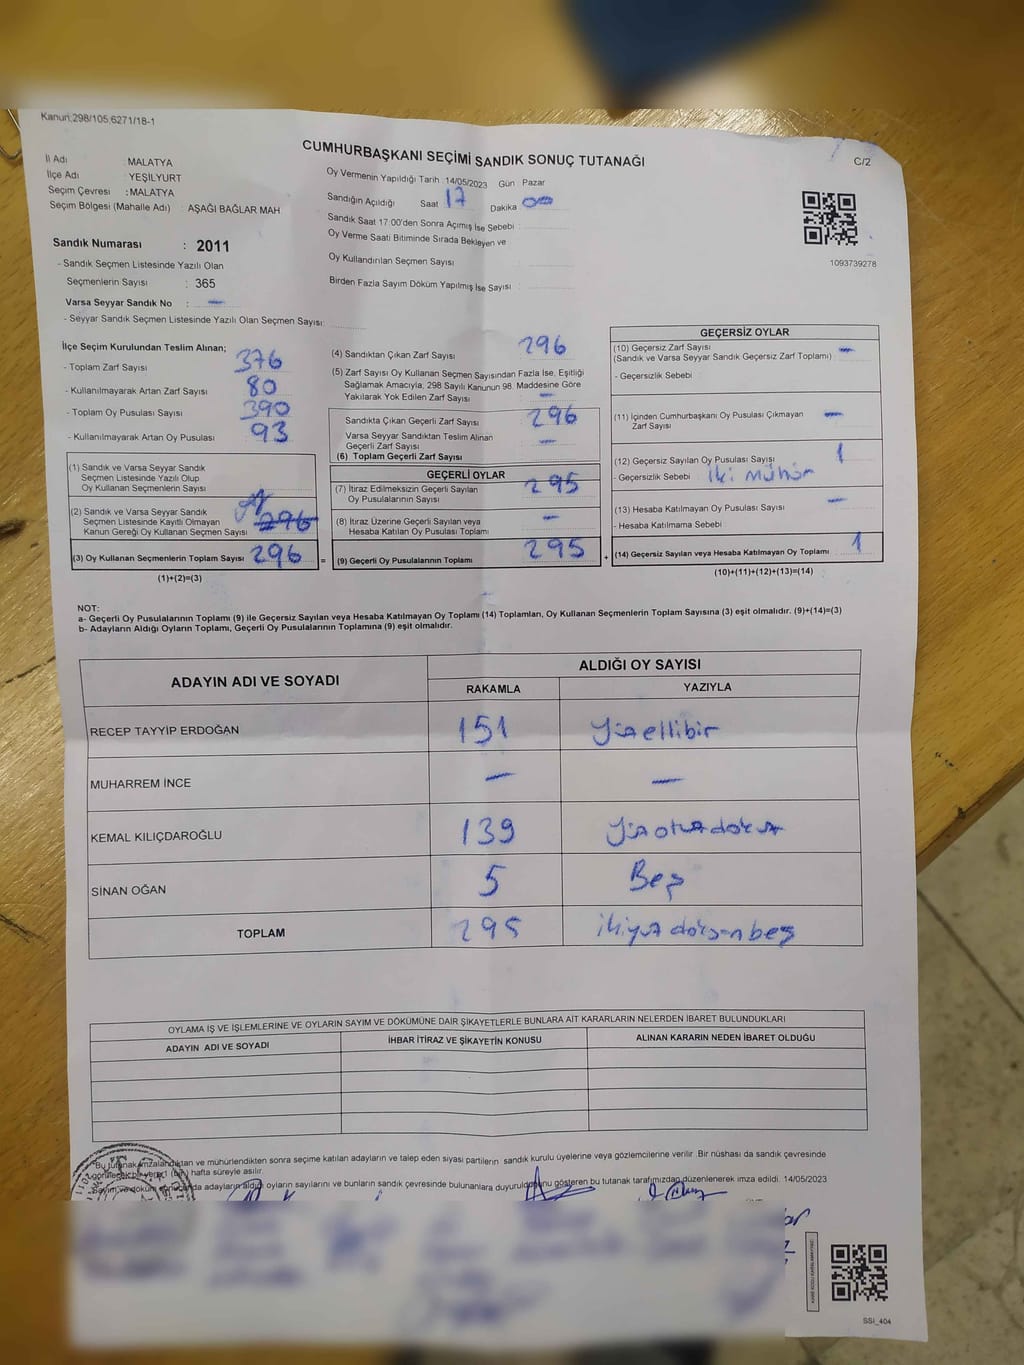 Kanun;298/105,6271/18-1
CUMHURBAŞKANI SEÇİMİ SANDIK SONUÇ TUTANAĞI
C/2
İl Adı : MALATYA
İlçe Adı : YEŞİLYURT
Seçim Çevresi : MALATYA
Seçim Bölgesi (Mahalle Adı) : AŞAĞI BAĞLAR MAH
Oy Vermenin Yapıldığı Tarih :14/05/2023 Gün Pazar
Sandığın Açıldığı Saat 17 Dakika 00
Sandık Saat 17:00'den Sonra Açımış İse Sebebi :
Oy Verme Saati Bitiminde Sırada Bekleyen ve
Oy Kullandırılan Seçmen Sayısı
Birden Fazla Sayım Döküm Yapılmış İse Sayısı :
1093739278
Sandık Numarası : 2011
- Sandık Seçmen Listesinde Yazılı Olan
Seçmenlerin Sayısı : 365
Varsa Seyyar Sandık No : —
- Seyyar Sandık Seçmen Listesinde Yazılı Olan Seçmen Sayısı:
İlçe Seçim Kurulundan Teslim Alınan;
- Toplam Zarf Sayısı 376
- Kullanılmayarak Artan Zarf Sayısı 80
- Toplam Oy Pusulası Sayısı 390
- Kullanılmayarak Artan Oy Pusulası 93
(1) Sandık ve Varsa Seyyar Sandık
Seçmen Listesinde Yazılı Olup
Oy Kullanan Seçmenlerin Sayısı
(2) Sandık ve Varsa Seyyar Sandık
Seçmen Listesinde Kayıtlı Olmayan
Kanun Gereği Oy Kullanan Seçmen Sayısı 296
(3) Oy Kullanan Seçmenlerin Toplam Sayısı 296 =
(1)+(2)=(3)
(4) Sandıktan Çıkan Zarf Sayısı 296
(5) Zarf Sayısı Oy Kullanan Seçmen Sayısından Fazla İse, Eşitliği
Sağlamak Amacıyla, 298 Sayılı Kanunun 98. Maddesine Göre
Yakılarak Yok Edilen Zarf Sayısı —
Sandıkta Çıkan Geçerli Zarf Sayısı 296
Varsa Seyyar Sandıktan Teslim Alınan
Geçerli Zarf Sayısı —
(6) Toplam Geçerli Zarf Sayısı
GEÇERLİ OYLAR
(7) İtiraz Edilmeksizin Geçerli Sayılan
Oy Pusulalarının Sayısı 295
(8) İtiraz Üzerine Geçerli Sayılan veya
Hesaba Katılan Oy Pusulası Toplamı —
(9) Geçerli Oy Pusulalarının Toplamı 295 +
GEÇERSİZ OYLAR
(10) Geçersiz Zarf Sayısı —
(Sandık ve Varsa Seyyar Sandık Geçersiz Zarf Toplamı)
- Geçersizlik Sebebi :
(11) İçinden Cumhurbaşkanı Oy Pusulası Çıkmayan
Zarf Sayısı —
(12) Geçersiz Sayılan Oy Pusulası Sayısı 1
- Geçersizlik Sebebi : İki mühür
(13) Hesaba Katılmayan Oy Pusulası Sayısı —
- Hesaba Katılmama Sebebi
(14) Geçersiz Sayılan veya Hesaba Katılmayan Oy Toplamı 1
(10)+(11)+(12)+(13)=(14)
NOT:
a- Geçerli Oy Pusulalarının Toplamı (9) ile Geçersiz Sayılan veya Hesaba Katılmayan Oy Toplamı (14) Toplamları, Oy Kullanan Seçmenlerin Toplam Sayısına (3) eşit olmalıdır. (9)+(14)=(3)
b- Adayların Aldığı Oyların Toplamı, Geçerli Oy Pusulalarının Toplamına (9) eşit olmalıdır.
ADAYIN ADI VE SOYADI
ALDIĞI OY SAYISI
RAKAMLA YAZIYLA
RECEP TAYYİP ERDOĞAN 151 yüzellibir
MUHARREM İNCE — —
KEMAL KILIÇDAROĞLU 139 yüzotuzdokuz
SİNAN OĞAN 5 Beş
TOPLAM 295 ikiyüzdoksanbeş
OYLAMA İŞ VE İŞLEMLERİNE VE OYLARIN SAYIM VE DÖKÜMÜNE DAİR ŞİKAYETLERLE BUNLARA AİT KARARLARIN NELERDEN İBARET BULUNDUKLARI
ADAYIN ADI VE SOYADI İHBAR İTİRAZ VE ŞİKAYETİN KONUSU ALINAN KARARIN NEDEN İBARET OLDUĞU
Bu tutanak imzalandıktan ve mühürlendikten sonra seçime katılan adayların ve talep eden siyasi partilerin sandık kurulu üyelerine veya gözlemcilerine verilir. Bir nüshası da sandık çevresinde
görülecek bir yere 1 (bir) hafta süreyle asılır.
Sayım ve döküm sonucunda adayların aldığı oyların sayılarını ve bunların sandık çevresinde bulunanlara duyurulduğunu gösteren bu tutanak tarafımızdan düzenlenerek imza edildi. 14/05/2023
SSI_404